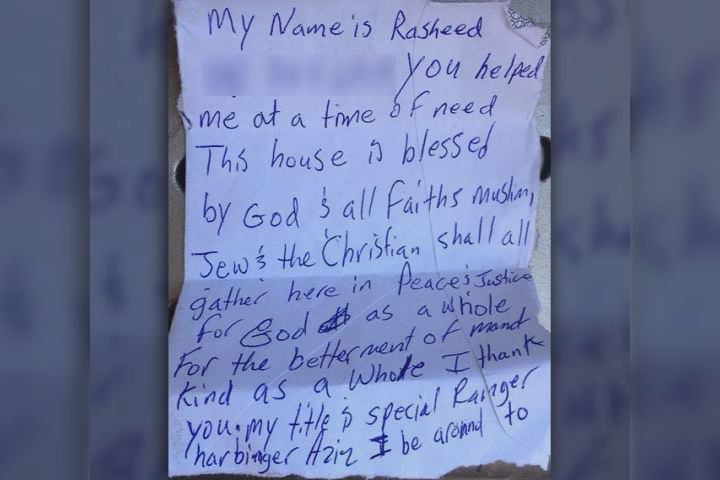 My Name is Rasheed
you helped
me at a time of need
This house is blessed
by God & all Faiths Muslim,
Jew & the Christian shall all
gather here in Peace & Justice
for God as a whole
For the betterment of mand
kind as a Whole I thank
you. my title is special Rainger
harbinger Aziz I be around to